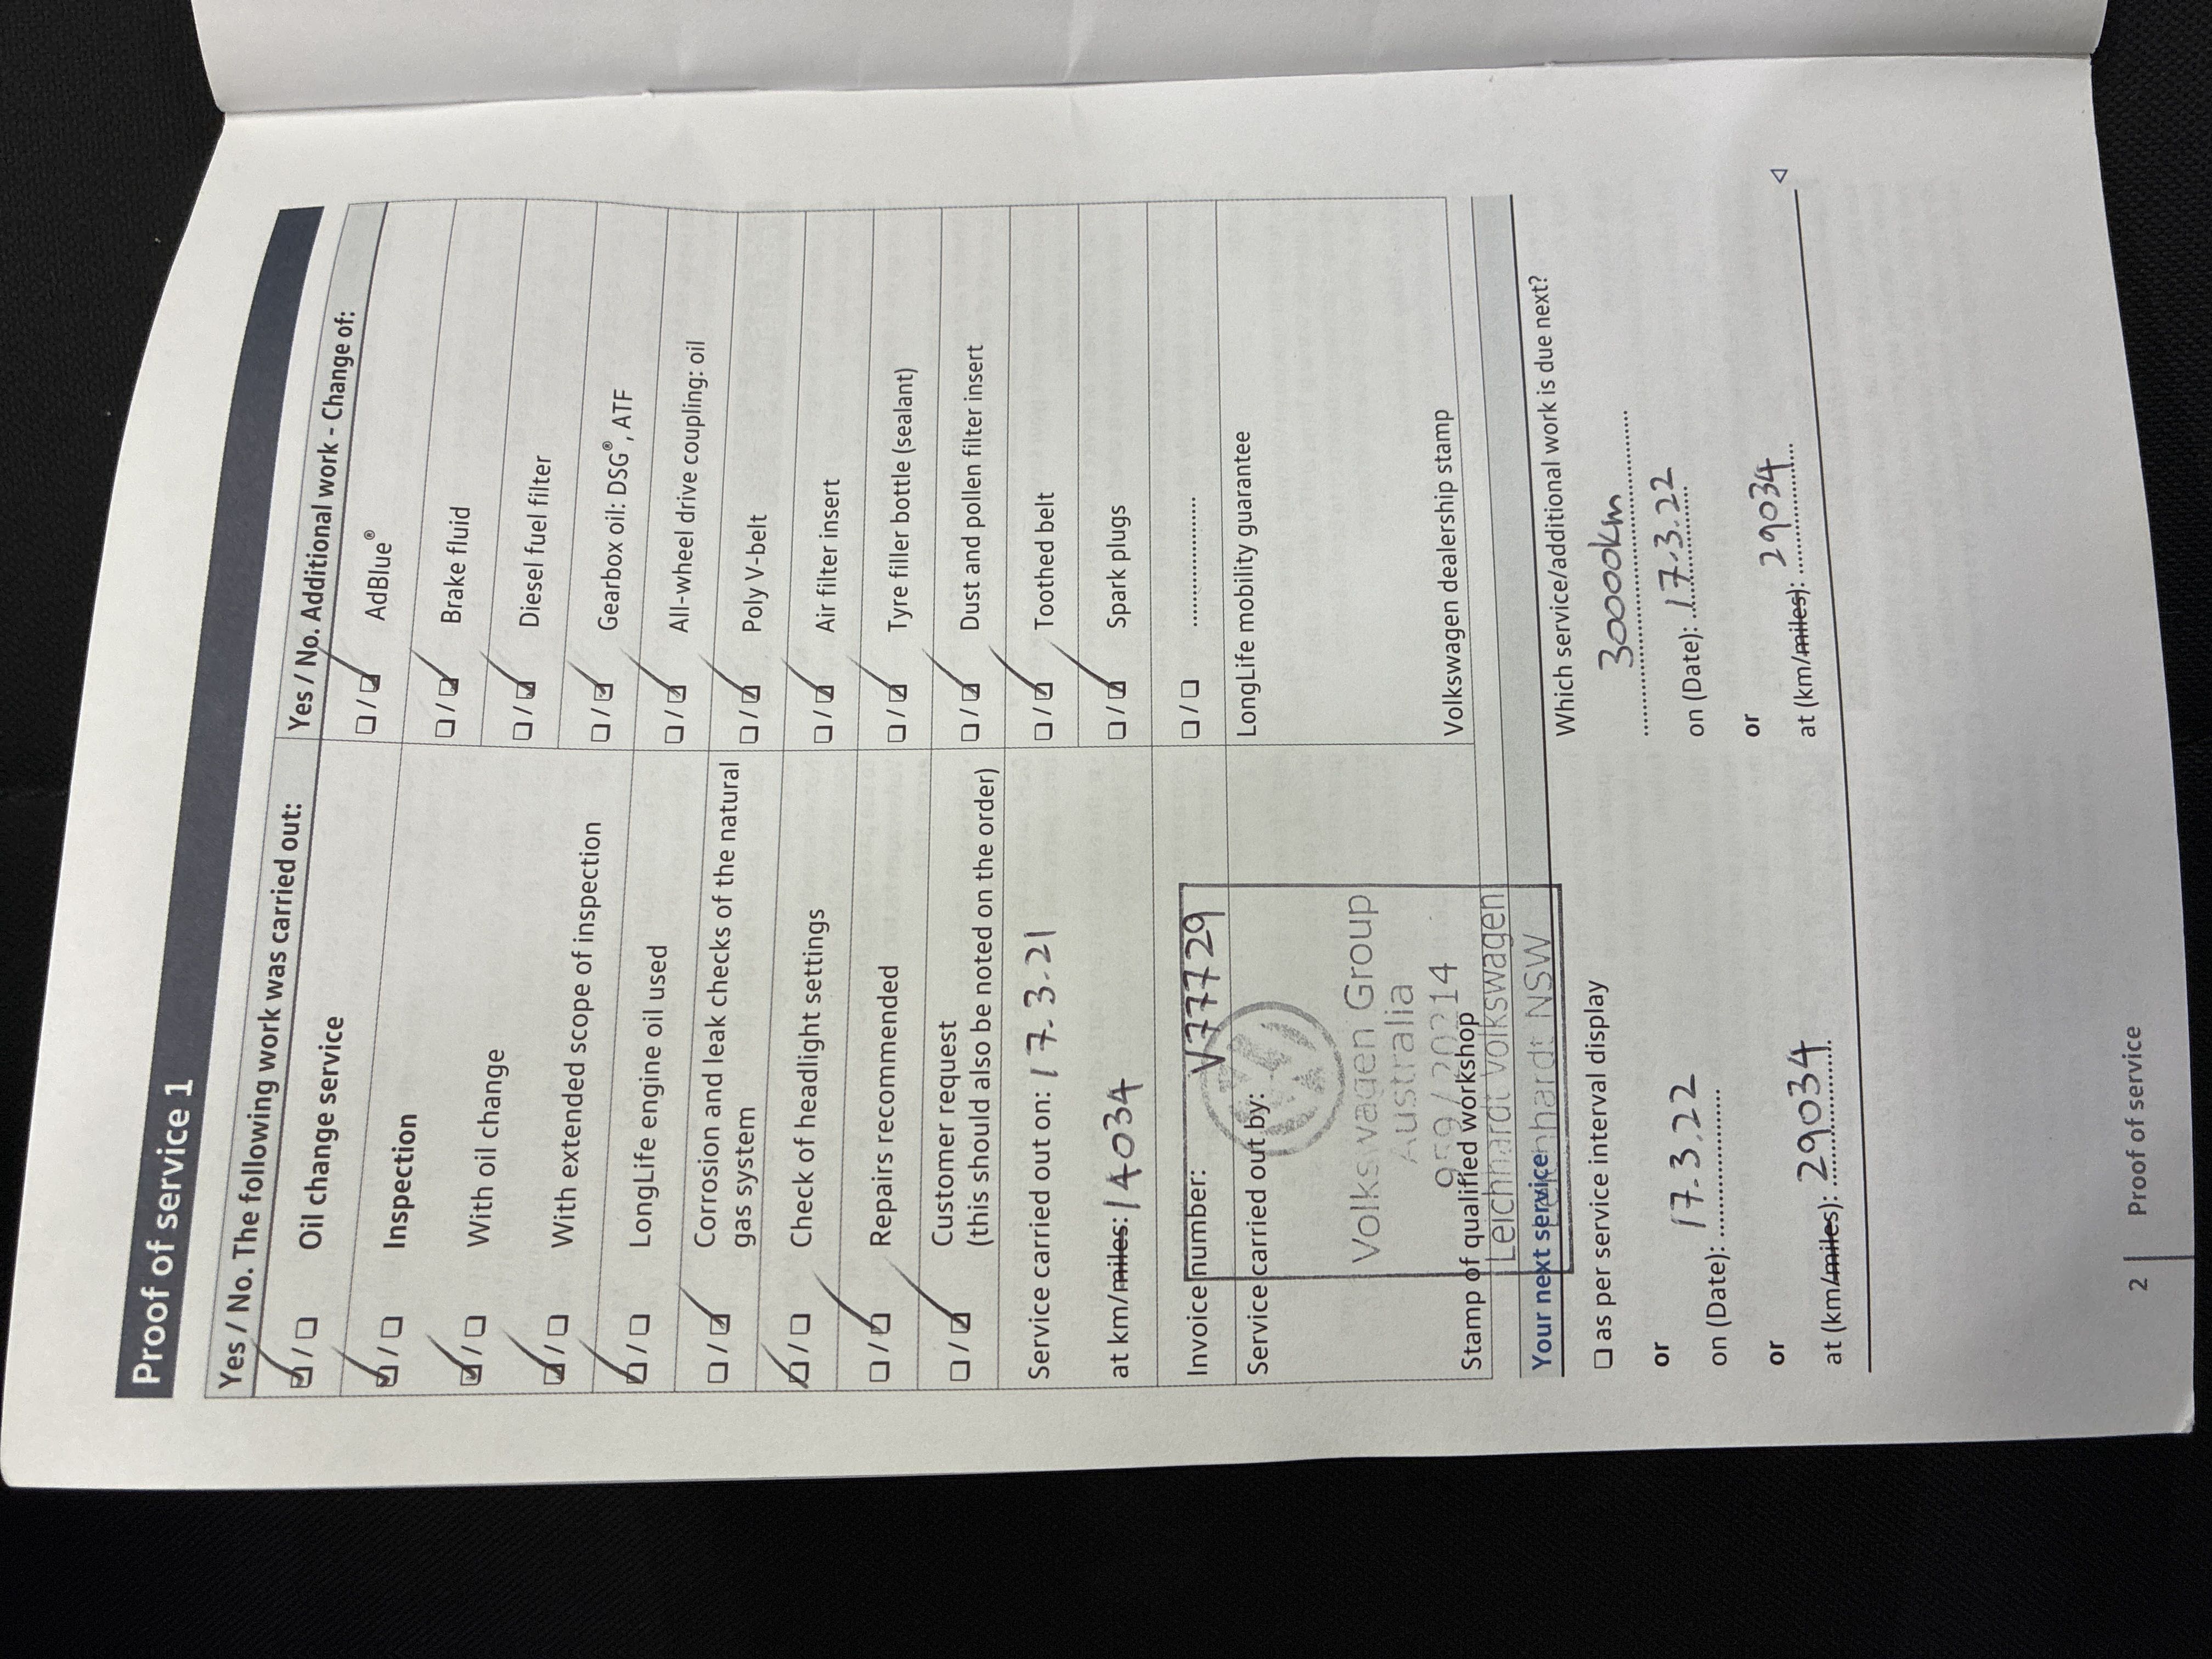 Proof of service 1
Yes / No. The following work was carried out:
Oil change service
Inspection
With oil change
With extended scope of inspection
LongLife engine oil used
Corrosion and leak checks of the natural
gas system
Check of headlight settings
Repairs recommended
Customer request
(this should also be noted on the order)
Service carried out on: 17.3.21
at km/miles: 14034
Invoice number: V77729
Service carried out by:
Volkswagen Group
Australia
Stamp of qualified workshop
Leichhardt Volkswagen
Leichhardt NSW
Yes / No. Additional work - Change of:
AdBlue®
Brake fluid
Diesel fuel filter
Gearbox oil: DSG®, ATF
All-wheel drive coupling: oil
Poly V-belt
Air filter insert
Tyre filler bottle (sealant)
Dust and pollen filter insert
Toothed belt
Spark plugs
LongLife mobility guarantee
Volkswagen dealership stamp
Your next service
as per service interval display
or
on (Date): 17.3.22
or
at (km/miles): 29034
Which service/additional work is due next?
30000km
on (Date): 17.3.22
or
at (km/miles): 29034
2 | Proof of service